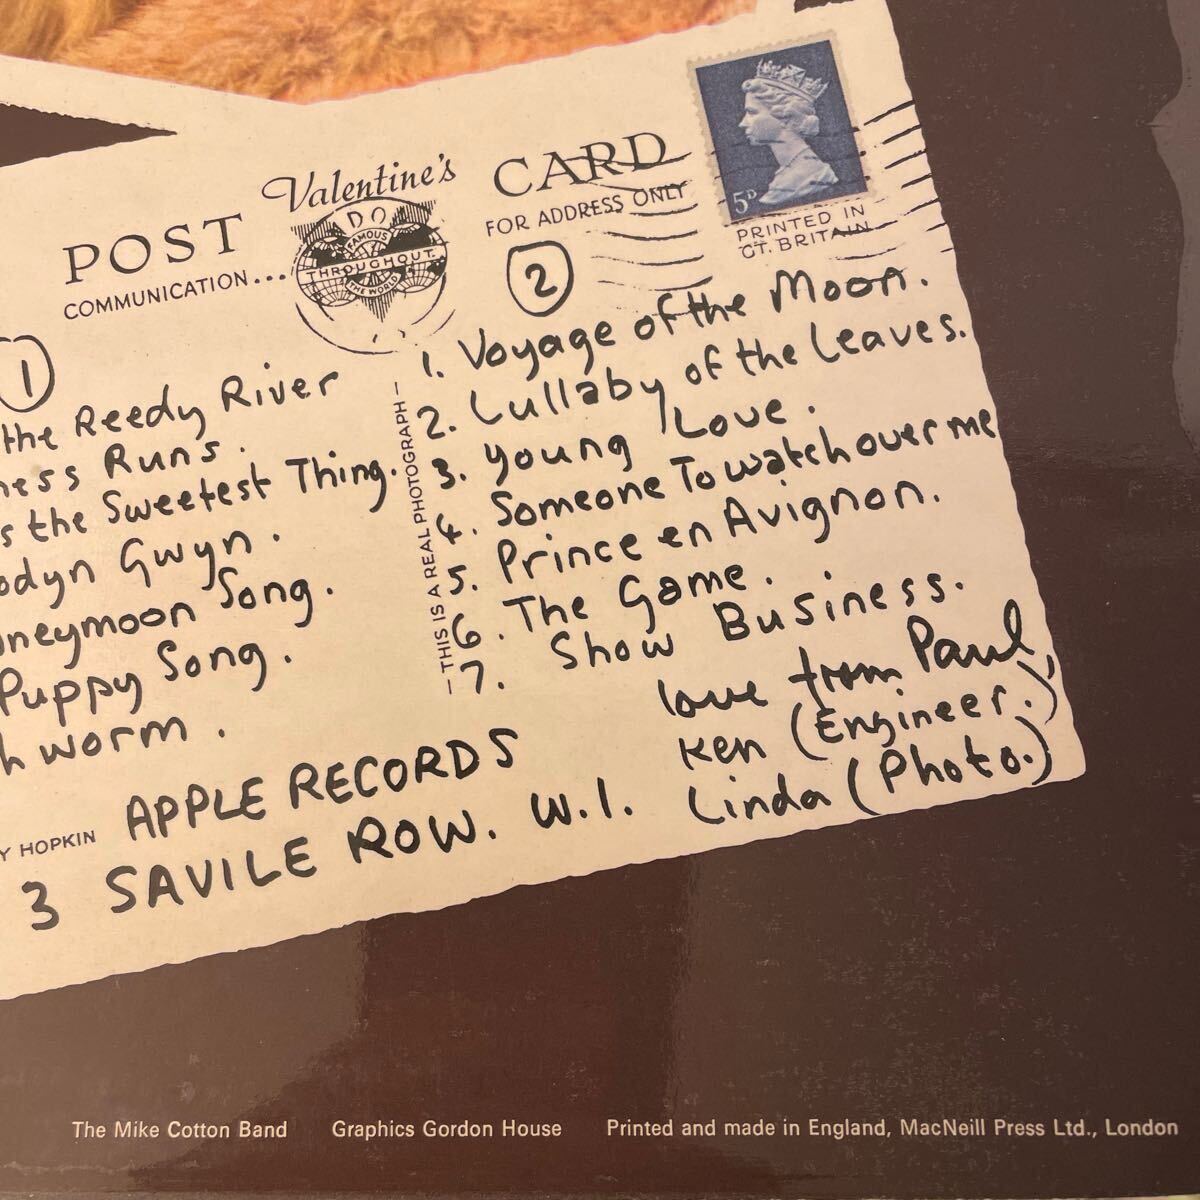 POST
Valentine's
CARD
COMMUNICATION...
FOR ADDRESS ONLY
DO
FAMOUS
THROUGHOUT
THE WORLD
5D
PRINTED IN
GT. BRITAIN
1
the Reedy River
ness Runs.
s the Sweetest Thing.
odyn Gwyn.
oneymoon Song.
Puppy Song.
h worm.
- THIS IS A REAL PHOTOGRAPH -
2
1. Voyage of the Moon.
2. Lullaby of the Leaves.
3. Young Love.
4. Someone To watch over me
5. Prince en Avignon.
6. The Game.
7. Show Business.
love from Paul,
Ken (Engineer.)
Linda (Photo.)
Y HOPKIN
APPLE RECORDS
3 SAVILE ROW. W.1.
The Mike Cotton Band Graphics Gordon House Printed and made in England, MacNeill Press Ltd., London